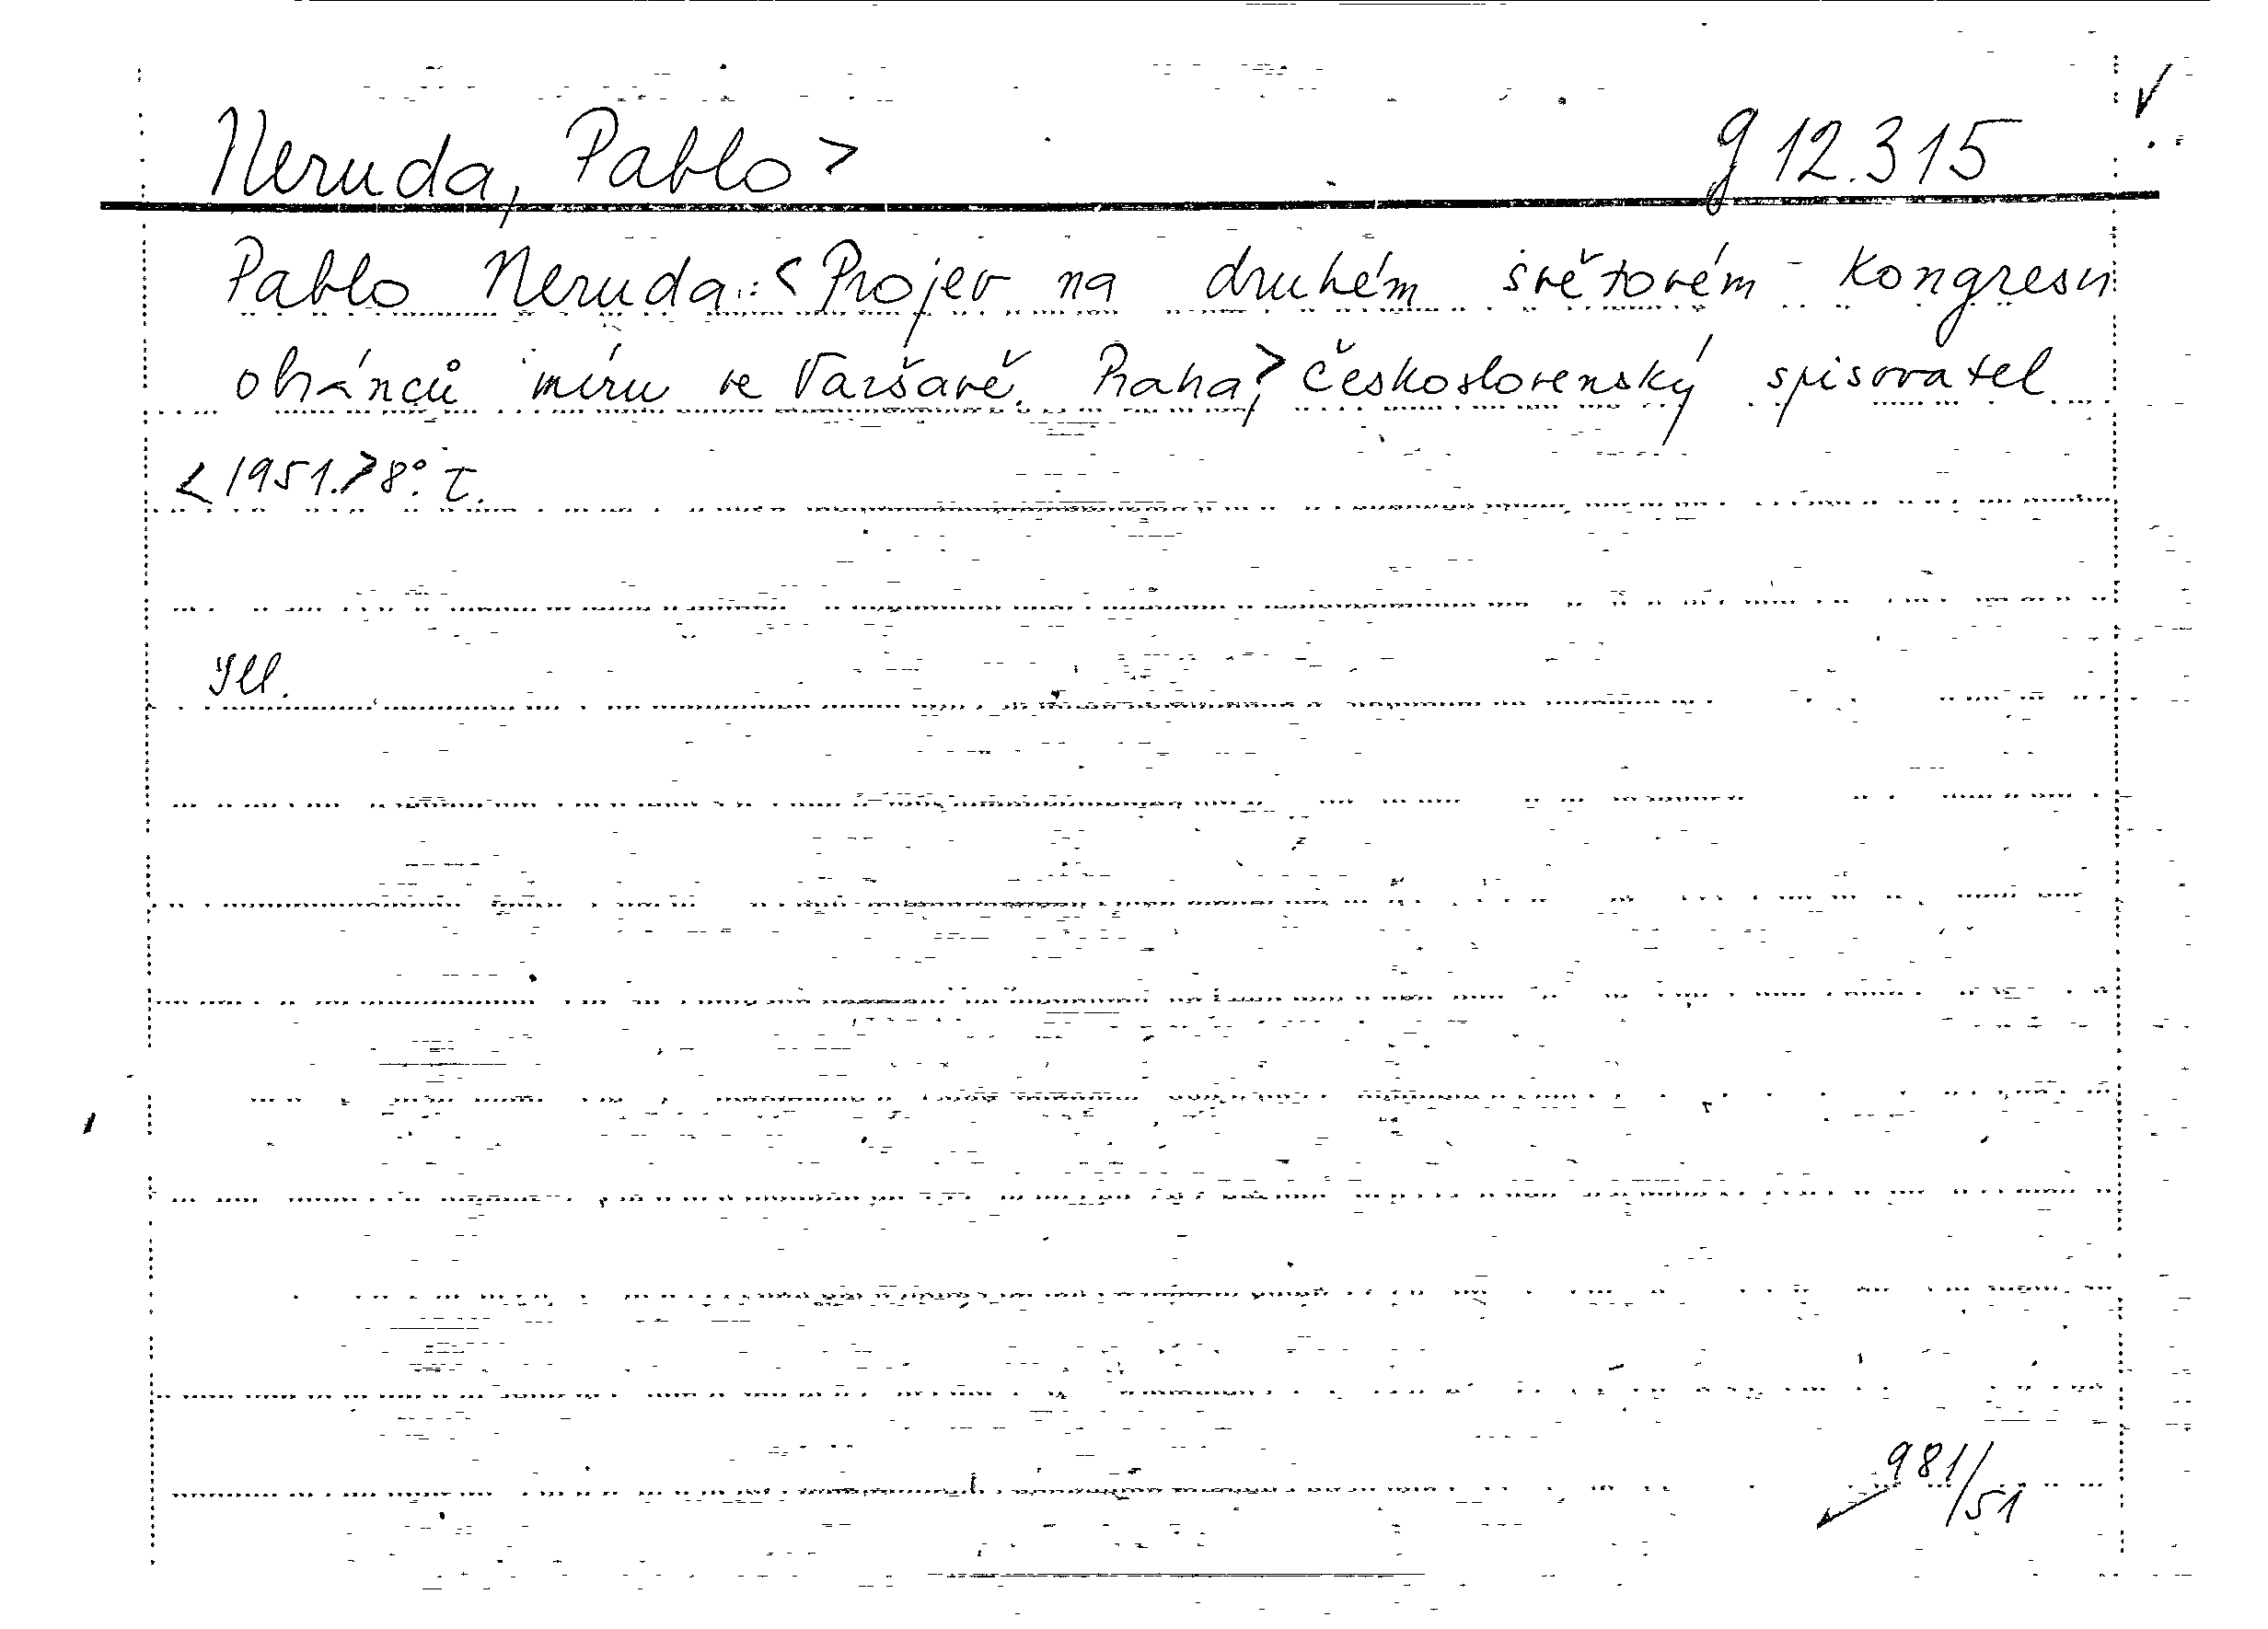 Neruda, Pablo > g 12.315
Pablo Neruda: < Projev na druhém světovém kongresu
obránců míru ve Varšavě. Praha, > Československý spisovatel
< 1951. > 8°. T.
Ill.
981/51